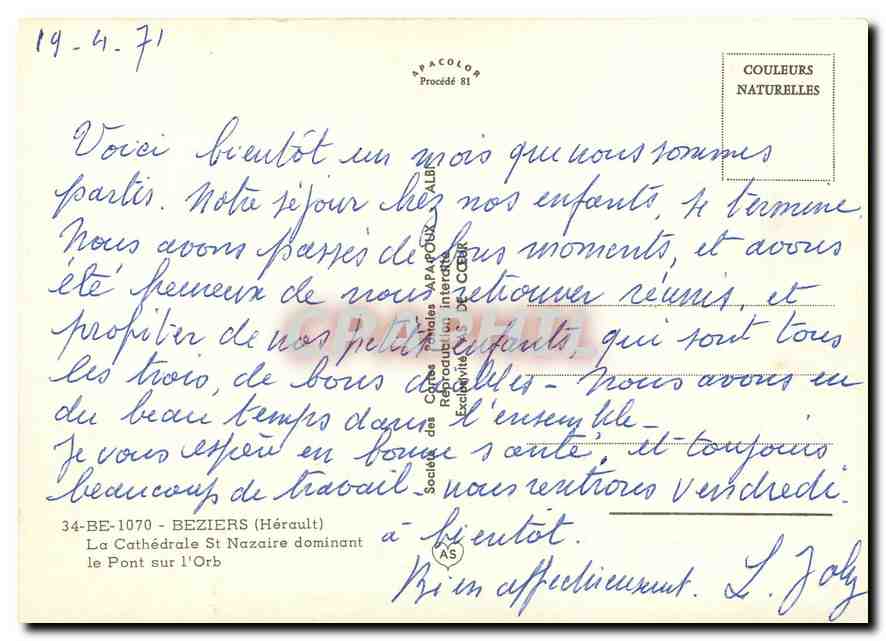 19-4-71
APACOLOR
Procédé 81
COULEURS
NATURELLES
Voici bientôt un mois que nous sommes
partis. Notre séjour chez nos enfants, se termine.
Nous avons passés de bons moments, et avons
été heureux de nous retrouver réunis, et
profiter de nos petits enfants, qui sont tous
les trois, de bons diables - Nous avons eu
du beau temps dans l'ensemble -
Je vous espère en bonne santé, et toujours
beaucoup de travail - nous rentrons vendredi.
à bientôt.
Bien affectueusement. L. Joly
Société des Cartes Postales APA-POUX - ALBI
Reproduction interdite
Exclusivité AS DE CŒUR
34-BE-1070 - BEZIERS (Hérault)
La Cathédrale St Nazaire dominant
le Pont sur l'Orb
AS